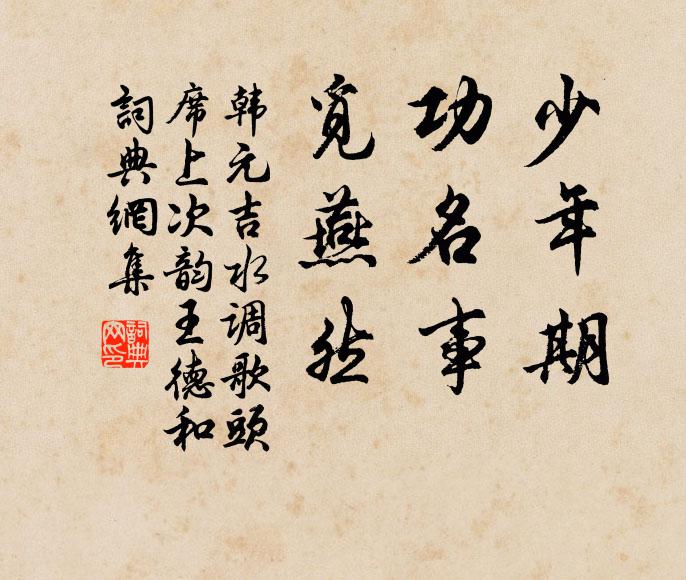 少年期
功名事
覓燕然
韩元吉水调歌頭
席上次韵王德和
詞典網集
詞典
网印